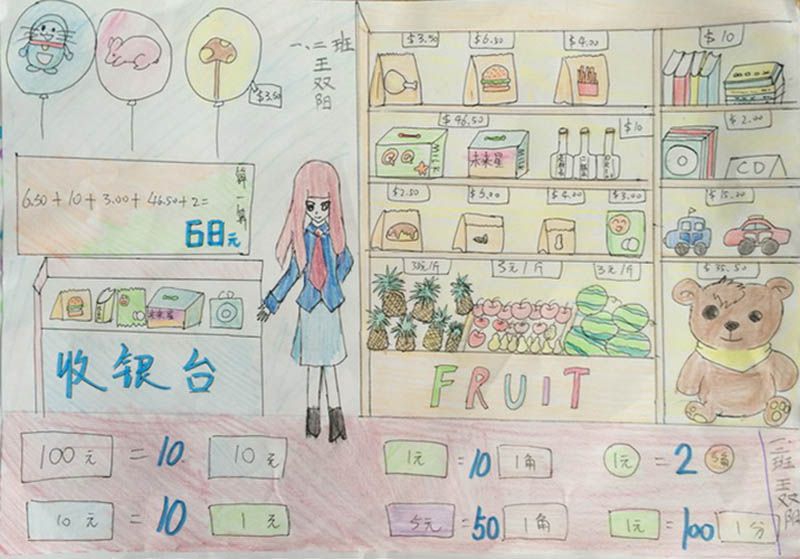 一、二班
王双阳
$3.50
$3.50
$6.50
$4.00
$10
$46.50
MILK
未来星
$10
$2.00
CD
6.50+10+3.00+46.50+2=
68元
算一算
$2.50
$5.00
$4.00
$3.00
$15.00
3元/斤
3元/斤
$35.50
未来星
收银台
FRUIT
100元 = 10 10元
1元 = 10 1角
1元 = 2 5角
10元 = 10 1元
5元 = 50 1角
1元 = 100 1分
一、二班 王双阳